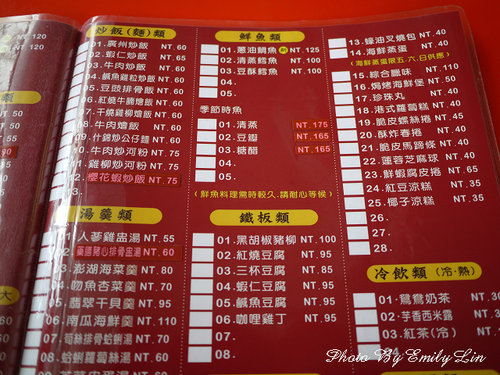 炒飯(麵)類
01.廣州炒飯 NT. 60
02.蝦仁炒飯 NT. 60
03.牛肉炒飯 NT. 60
04.鹹魚雞粒炒飯 NT. 60
05.豆豉排骨飯 NT. 60
06.紅燒牛腩燴飯 NT. 60
07.干燒雞柳燴飯 NT. 60
08.牛肉燴飯 NT. 60
09.什錦炒公仔麵 NT. 60
10.牛肉炒河粉 NT. 75
11.雞柳炒河粉 NT. 75
12.櫻花蝦炒飯 NT. 75
湯羹類
人蔘雞盅湯 NT. 55
藥膳豬心排骨盅湯 NT. 60
03.澎湖海菜羹 NT. 60
04.吻魚杏菜羹 NT. 60
05.翡翠干貝羹 NT. 95
06.南瓜海鮮羹 NT. 110
07.苟絲排骨湯 NT. 55
08.蛤蜊蘿蔔絲湯 NT. 60
鮮魚類
01.蔥油鯛魚 NT. 125
02.清蒸鱈魚 NT. 100
03.豆酥鱈魚 NT. 100
季節時魚
01.清蒸 NT. 175
02.豆瓣 NT. 165
03.糖醋 NT. 165
04.
05.
(鮮魚料理需時較久.請耐心等候)
鐵板類
01.黑胡椒豬柳 NT. 100
02.紅燒豆腐 NT. 95
03.三杯豆腐 NT. 85
04.蝦仁豆腐 NT. 95
05.鹹魚豆腐 NT. 95
06.咖哩雞丁 NT. 95
07.
08.
13.蠔油叉燒包 NT. 40
14.海鮮蒸蛋 NT. 40
(海鮮蒸蛋限五.六.日供應)
15.綜合臘味 NT. 110
16.焗烤海鮮堡 NT. 50
17.珍珠丸 NT. 40
18.港式蘿蔔糕 NT. 50
19.脆皮螺絲捲 NT. 45
20.酥炸春捲 NT. 40
21.脆皮馬蹄條 NT. 40
22.蓮蓉芝麻球 NT. 40
23.鮮蝦腐皮捲 NT. 65
24.紅豆涼糕 NT. 35
25.椰子涼糕 NT. 35
26.
27.
28.
冷飲類(冷.熱)
01.鴛鴦奶茶 NT.
02.芋香西米露 NT.
03.紅茶(冷) NT.
Photo By Emily Lin